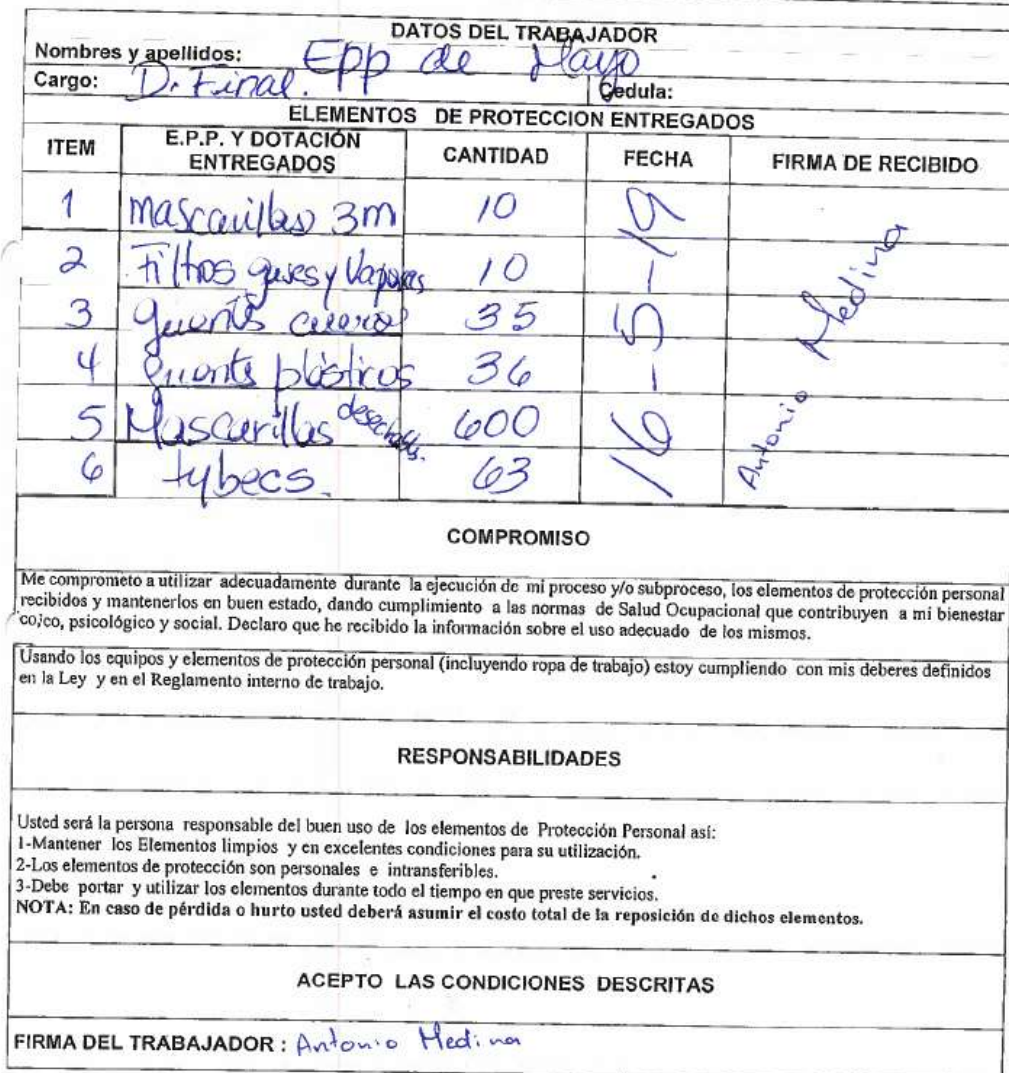 DATOS DEL TRABAJADOR
Nombres y apellidos: Epp de Mayo
Cargo: D. Final. Cedula:
ELEMENTOS DE PROTECCION ENTREGADOS
ITEM E.P.P. Y DOTACIÓN ENTREGADOS CANTIDAD FECHA FIRMA DE RECIBIDO
1 mascarillas 3m 10
2 Filtros gases y Vapores 10
3 guants cuero 35
4 guants plásticos 36
5 Mascarillas desechables. 600
6 tybecs. 63
16-5-19
Antonio Medina
COMPROMISO
Me comprometo a utilizar adecuadamente durante la ejecución de mi proceso y/o subproceso, los elementos de protección personal
recibidos y mantenerlos en buen estado, dando cumplimiento a las normas de Salud Ocupacional que contribuyen a mi bienestar
co;co, psicológico y social. Declaro que he recibido la información sobre el uso adecuado de los mismos.
Usando los equipos y elementos de protección personal (incluyendo ropa de trabajo) estoy cumpliendo con mis deberes definidos
en la Ley y en el Reglamento interno de trabajo.
RESPONSABILIDADES
Usted será la persona responsable del buen uso de los elementos de Protección Personal así:
1-Mantener los Elementos limpios y en excelentes condiciones para su utilización.
2-Los elementos de protección son personales e intransferibles.
3-Debe portar y utilizar los elementos durante todo el tiempo en que preste servicios.
NOTA: En caso de pérdida o hurto usted deberá asumir el costo total de la reposición de dichos elementos.
ACEPTO LAS CONDICIONES DESCRITAS
FIRMA DEL TRABAJADOR : Antonio Medina